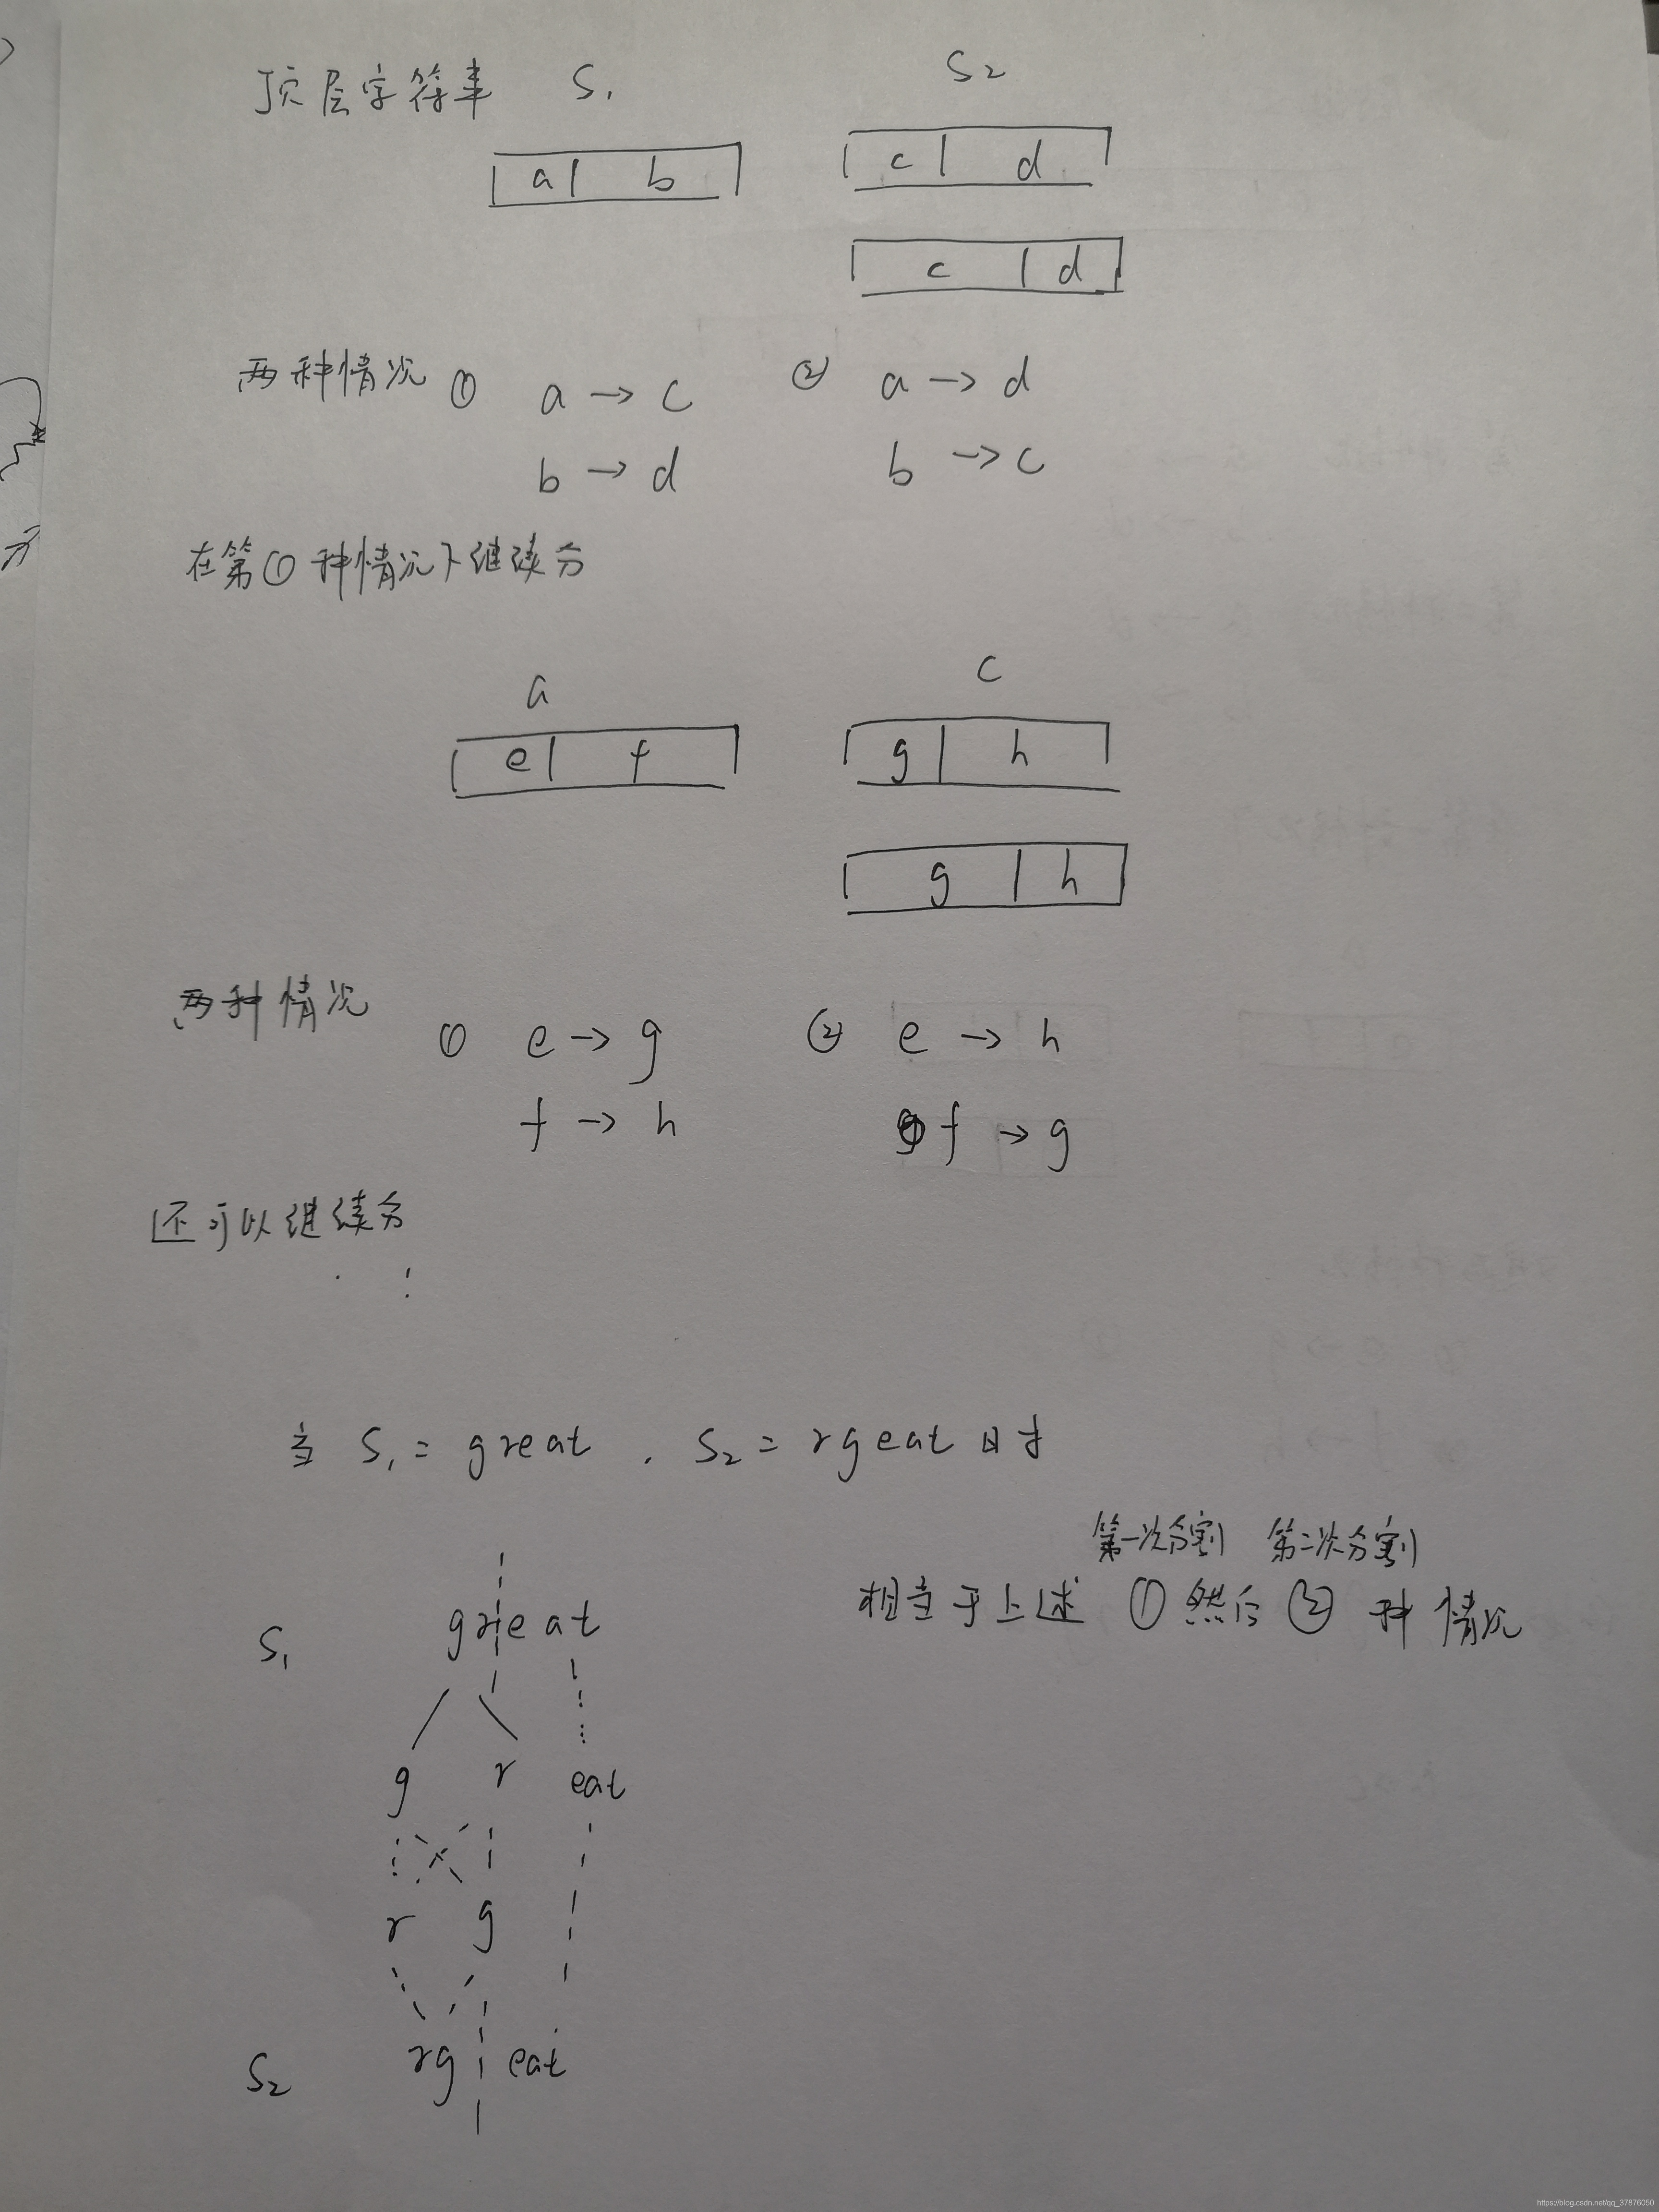 顶层字符串 S₁ S₂
a b c d
c d
两种情况 ① a → c ② a → d
b → d b → c
在第①种情况下继续分
a c
e f g h
g h
两种情况 ① e → g ② e → h
f → h f → g
还可以继续分
当 S₁ = great , S₂ = rgeat 时
第一次分割 第二次分割
相当于上述 ① 然后 ② 种情况
S₁ great
g r eat
r g
S₂ rg eat
https://blog.csdn.net/qq_37876050